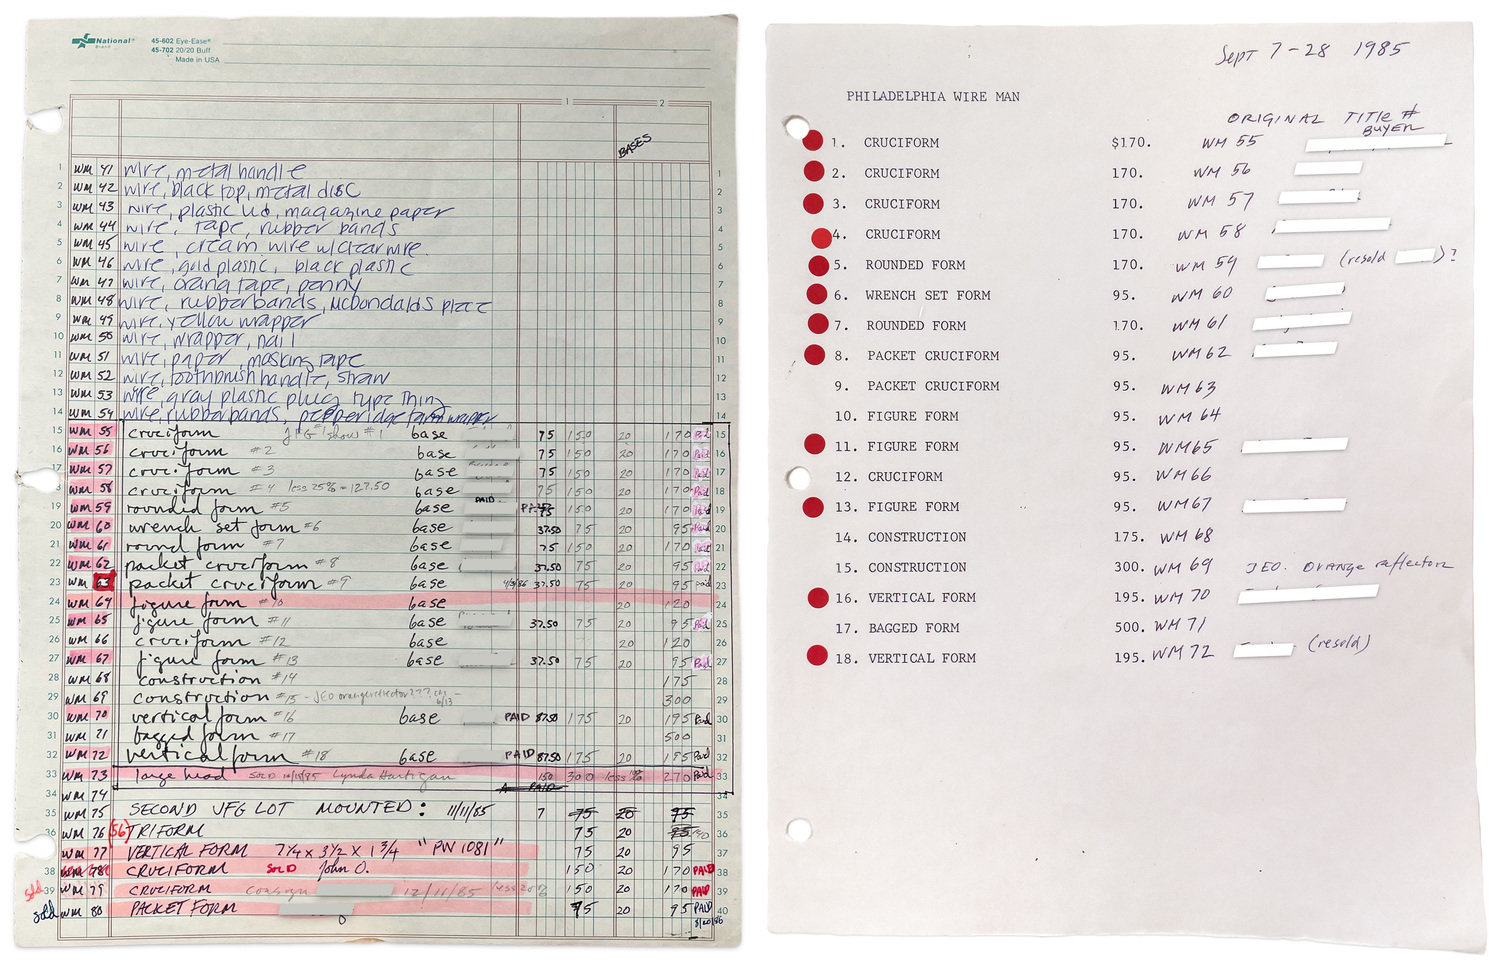 National®
Brand
45-602 Eye-Ease®
45-702 20/20 Buff
Made in USA
1 2
BASES
1 WM 41 wire, metal handle 1
2 WM 42 wire, black top, metal disc 2
3 WM 43 wire, plastic lid, magazine paper 3
4 WM 44 wire, tape, rubber bands 4
5 WM 45 wire, cream wire w/clear wire. 5
6 WM 46 wire, gold plastic, black plastic 6
7 WM 47 wire, orang tape, penny 7
8 WM 48 wire, rubberbands, McDonalds piece 8
9 WM 49 wire, yellow wrapper 9
10 WM 50 wire, wrapper, nail 10
11 WM 51 wire, paper, masking tape 11
12 WM 52 wire, toothbrush handle, straw 12
13 WM 53 wire, gray plastic plug type thing 13
14 WM 54 wire, rubberbands, pepperidge farm wrapper 14
15 WM 55 cruciform show #1 base 75 150 20 170 Pd 15
16 WM 56 cruciform #2 base 75 150 20 170 Paid 16
17 WM 57 cruciform #3 base 75 150 20 170 Paid 17
18 WM 58 cruciform #4 less 25% = 127.50 base 75 150 20 170 Paid 18
19 WM 59 rounded form #5 base PAID 75 150 20 170 Paid 19
20 WM 60 wrench set form #6 base 37.50 75 20 95 Paid 20
21 WM 61 round form #7 base 75 150 20 170 Paid 21
22 WM 62 packet cruciform #8 base 37.50 75 20 95 Paid 22
23 WM 63 packet cruciform #9 base 4/3/86 37.50 75 20 95 paid 23
24 WM 64 figure form #10 base 20 120 24
25 WM 65 figure form #11 base 37.50 75 20 95 Paid 25
26 WM 66 cruciform #12 base 20 120 26
27 WM 67 figure form #13 base 37.50 75 20 95 Paid 27
28 WM 68 construction #14 175 28
29 WM 69 construction #15 - JEO orange reflector??? 6/13 300 29
30 WM 70 vertical form #16 base PAID 87.50 175 20 195 Paid 30
31 WM 71 bagged form #17 500 31
32 WM 72 vertical form #18 base PAID 87.50 175 20 195 Paid 32
33 WM 73 large head SOLD 10/15/85 Lynda Hartigan 150 300 less 10% 270 Paid 33
34 WM 74 PAID 34
35 WM 75 SECOND JFG LOT MOUNTED: 11/11/85 7 75 20 95 35
36 WM 76 (56) TRIFORM 75 20 95 36
37 WM 77 VERTICAL FORM 7 1/4 x 3 1/2 x 1 3/4 "PW 1081" 75 20 95 37
38 WM 78 CRUCIFORM SOLD John O. 150 20 170 PAID 38
sold 39 WM 79 CRUCIFORM consign 12/11/85 less 20% 150 20 170 PAID 39
sold WM 80 PACKET FORM 75 20 95 PAID 40
8/20/86
Sept 7-28 1985
PHILADELPHIA WIRE MAN
ORIGINAL TITLE #
BUYER
1. CRUCIFORM $170. WM 55
2. CRUCIFORM 170. WM 56
3. CRUCIFORM 170. WM 57
4. CRUCIFORM 170. WM 58
5. ROUNDED FORM 170. WM 59 (resold )?
6. WRENCH SET FORM 95. WM 60
7. ROUNDED FORM 170. WM 61
8. PACKET CRUCIFORM 95. WM 62
9. PACKET CRUCIFORM 95. WM 63
10. FIGURE FORM 95. WM 64
11. FIGURE FORM 95. WM 65
12. CRUCIFORM 95. WM 66
13. FIGURE FORM 95. WM 67
14. CONSTRUCTION 175. WM 68
15. CONSTRUCTION 300. WM 69 JEO. orange reflector
16. VERTICAL FORM 195. WM 70
17. BAGGED FORM 500. WM 71
18. VERTICAL FORM 195. WM 72 (resold)